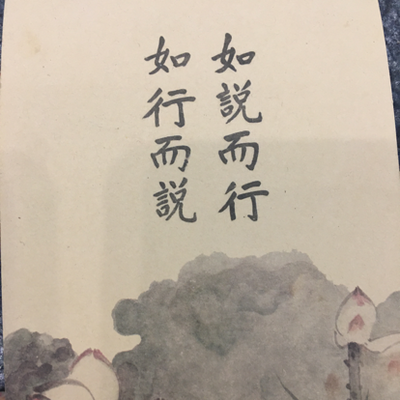 如說而行
如行而說